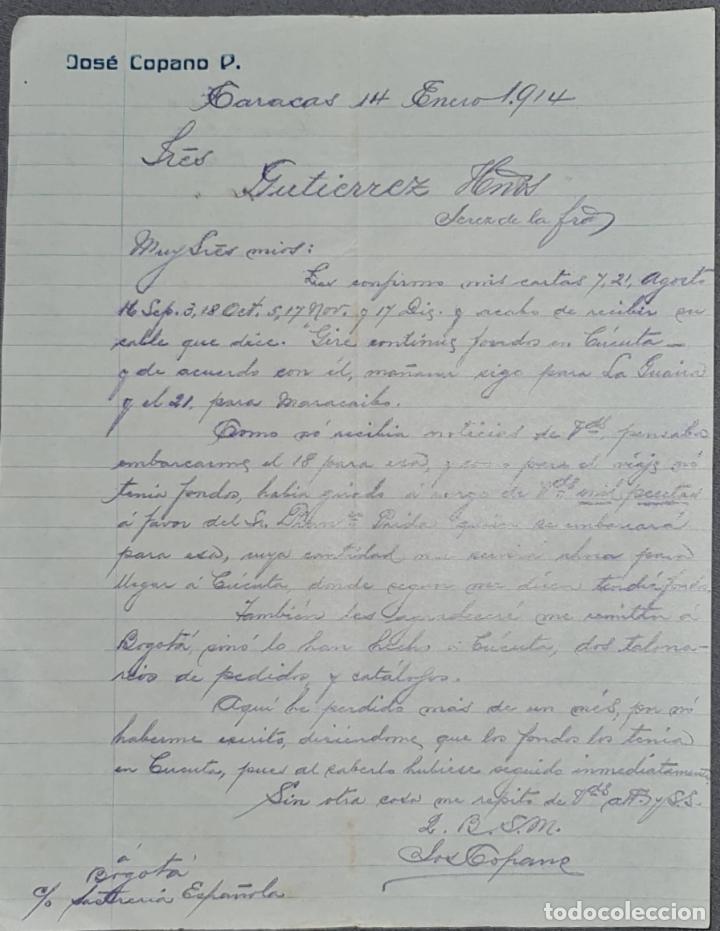 José Copano P.
Caracas 14 Enero 1.914
Srēs
Gutierrez Hnos
Jerez de la fra
Muy Srēs mios:
Les confirmo mis cartas 7, 21, Agosto
16 Sep. 3, 18 Oct. 5, 17 Nov. y 17 Dic. y acabo de recibir su
cable que dice. "Gire continue fondos en Cúcuta
y de acuerdo con él, mañana sigo para La Guaira
y el 21. para Maracaibo.
Como nó recibia noticias de Vds. pensaba
embarcarme el 18 para esa, y como para el viaje nó
tenia fondos, habia girado á cargo de Vds mil pesetas
á favor del Sr. quien se embarcará
para esa, cuya cantidad me servirá ahora para
llegar á Cúcuta, donde segun me dicen tendré fondos
También les agradeceré me remitan á
Bogotá, sinó lo han hecho á Cúcuta, dos talona-
rios de pedidos, y catálogos.
Aquí he perdido más de un més, por nó
haberme escrito, diciendome que los fondos los tenia
en Cucuta, pues al saberlo hubiese seguido inmediatamente
Sin otra cosa me repito de Vds att. y S.S.
Q. B. S. M.
José Copano
á
Bogotá
c/o Sastreria Española
todocoleccion